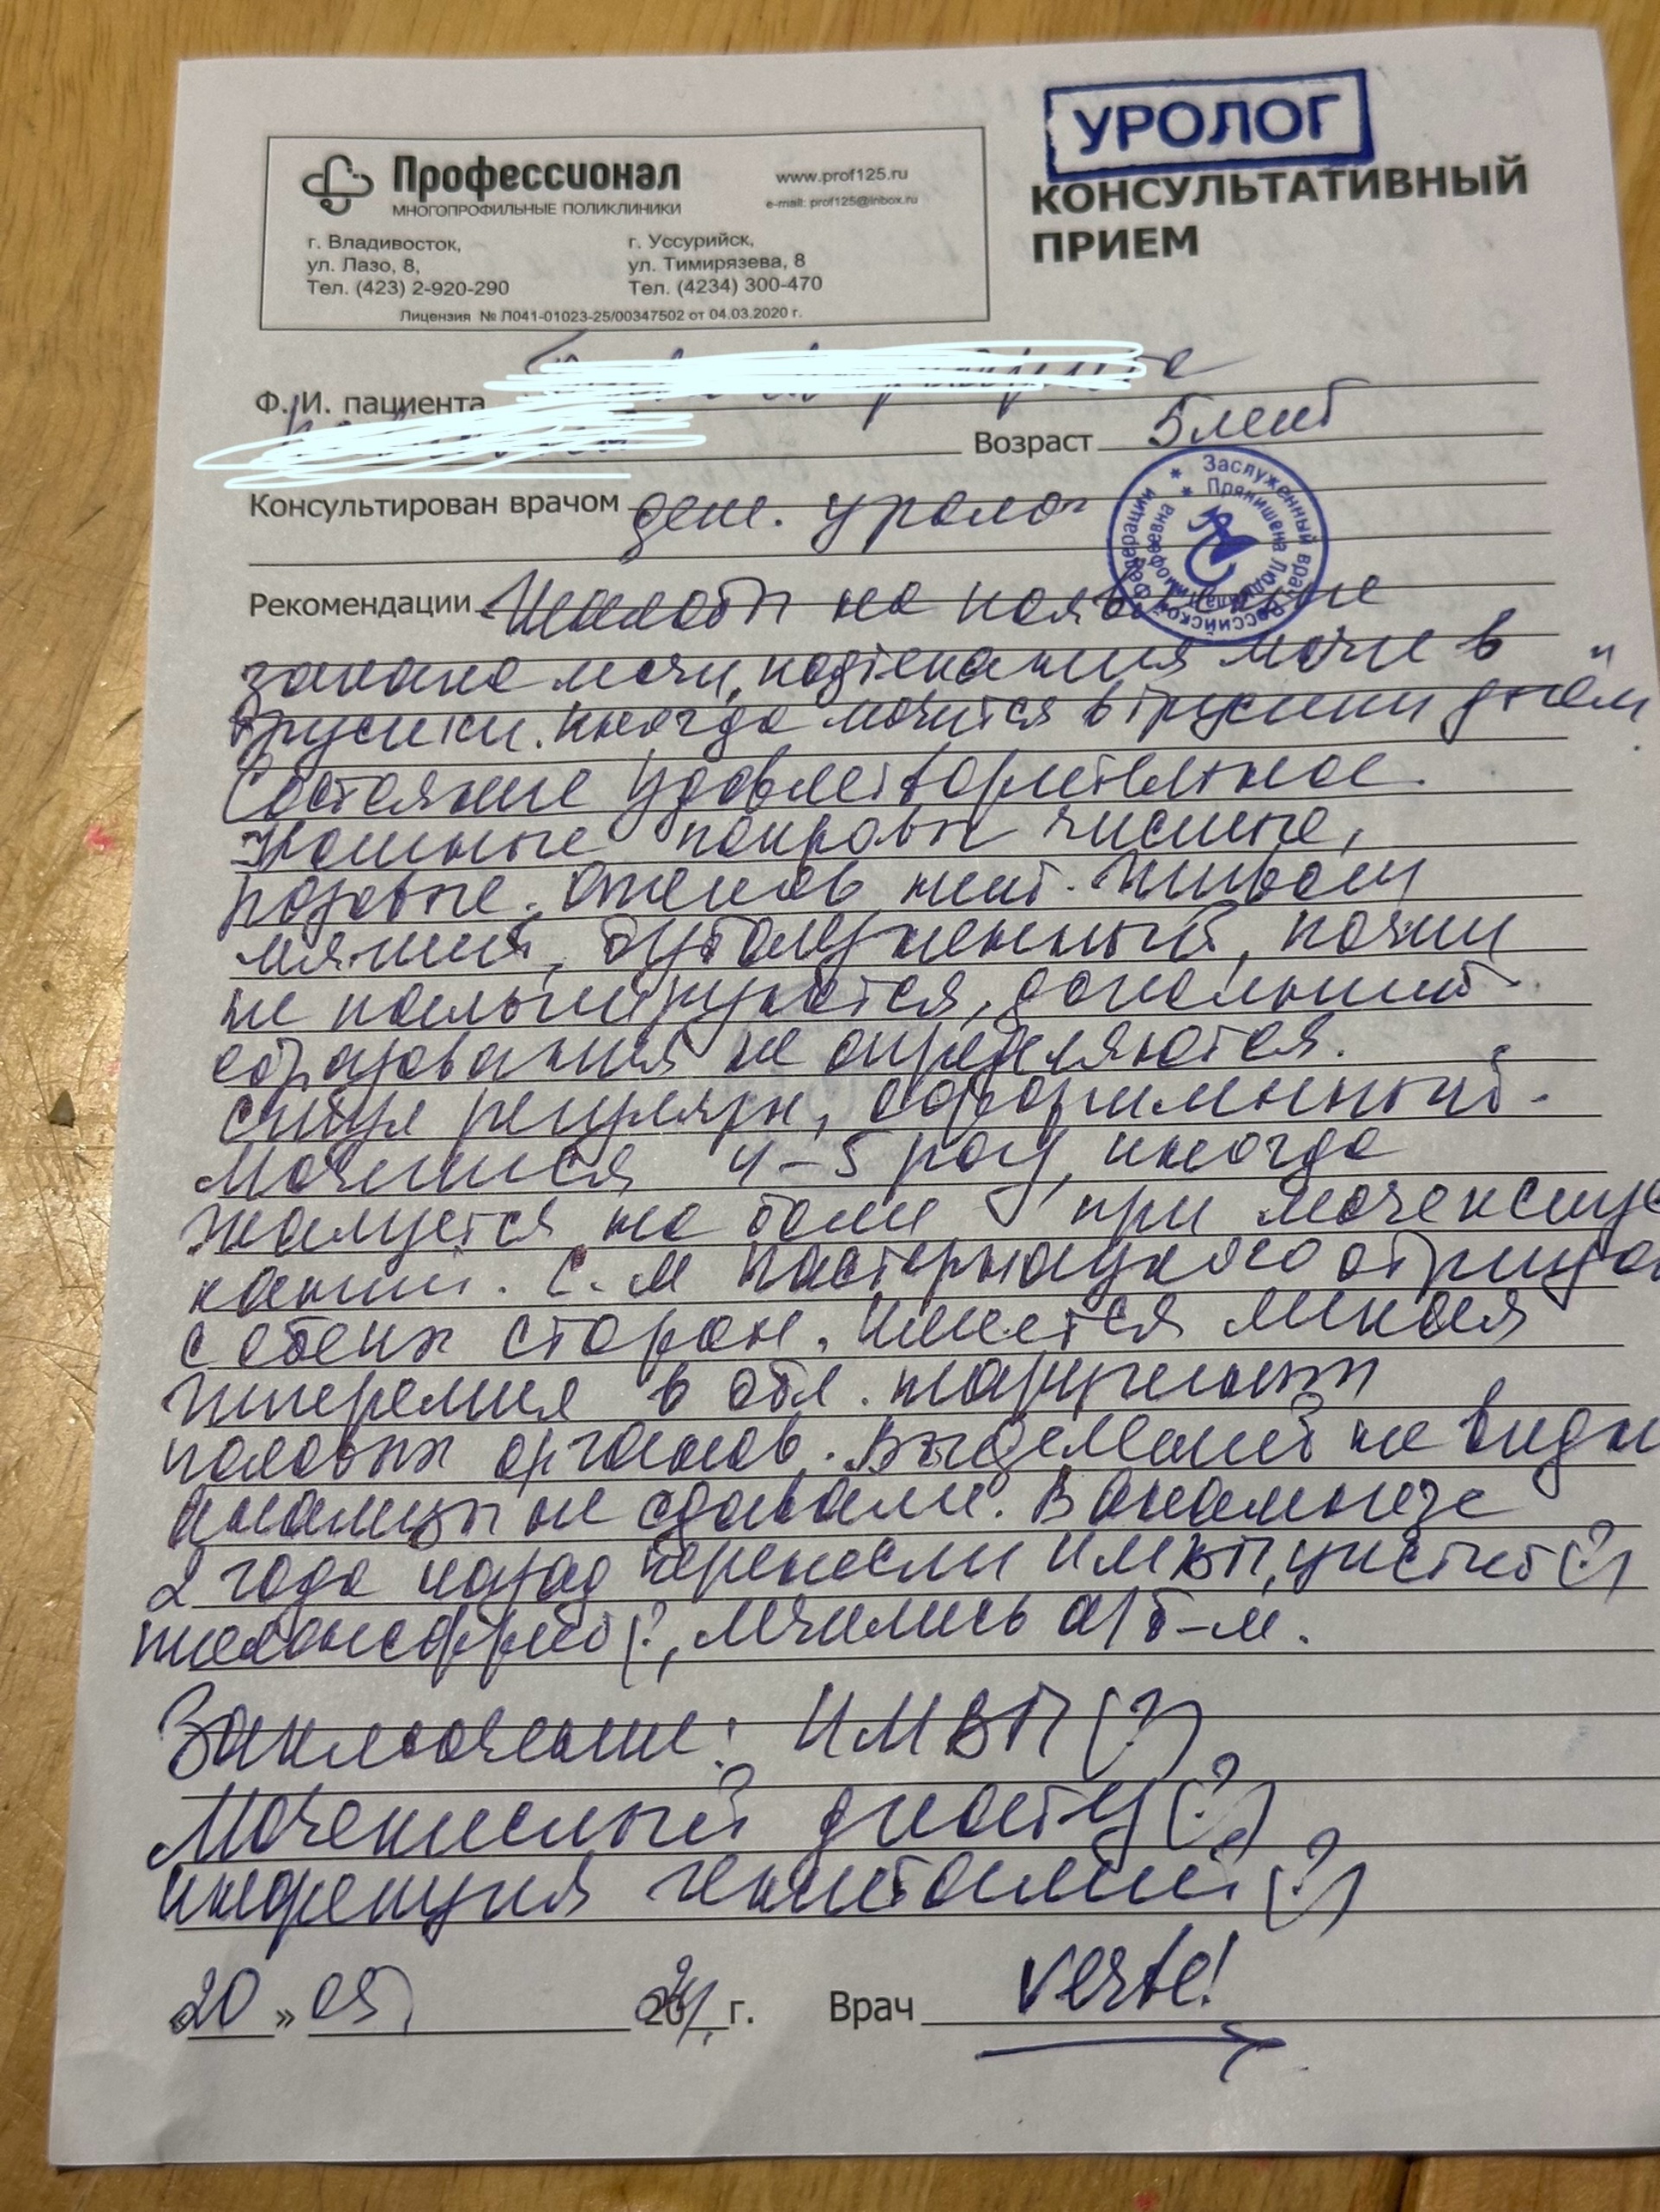 УРОЛОГ
Профессионал
МНОГОПРОФИЛЬНЫЕ ПОЛИКЛИНИКИ
www.prof125.ru
e-mail: prof125@inbox.ru
г. Владивосток,
ул. Лазо, 8,
Тел. (423) 2-920-290
г. Уссурийск,
ул. Тимирязева, 8
Тел. (4234) 300-470
Лицензия № Л041-01023-25/00347502 от 04.03.2020 г.
КОНСУЛЬТАТИВНЫЙ
ПРИЕМ
Ф. И. пациента
Возраст 5 лет
Консультирован врачом дет. уролог
Заслуженный врач Российской Федерации
Людмила Тимофеевна
Рекомендации Жалобы на появление
запаха мочи, подтекания мочи в
трусики. Иногда мочится в трусики днём.
Состояние удовлетворительное.
Кожные покровы чистые,
розовые. Отеков нет. Живот
мягкий, безболезненный, почки
не пальпируются, дополнит.
образования не определяются.
Стул регулярн, оформленный.
Мочится 4-5 раз, иногда
жалуется на боли при мочеиспус
кании. С-м Пастернацкого отрицат
с обеих сторон. Имеется легкая
гиперемия в обл. наружных
половых органов. Выделений не видн
анализы не сдавали. В анамнезе
2 года назад перенесли ИМВП, цистит(?)
пиелонефрит(?, лечились а/б-м.
Заключение: ИМВП(?),
Мочекислый диатез(?)
инфекция гениталий(?)
«20» 05 24 г. Врач verte!